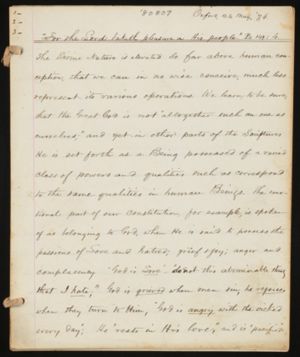 "For the Lord taketh pleasure in His people" Ps. 149: 4.
The Divine Nature is elevated so far above human con-
ception, that we can in no wise conceive, much less
represent its various operations. We learn, to be sure,
that the Great God is not "altogether such an one as
ourselves;" and yet in other parts of the Scriptures
He is set forth as a Being possessed of a varied
class of powers and qualities such as correspond
to the same qualities in human Beings. The emo-
tional part of our Constitution, for example, is spoken
of as belonging to God, when He is said to possess the
passions of Love and hatred; grief & joy; anger and
complacency. "God is Love" "do not this abominable thing
that I hate," God is grieved when men sin; he rejoices
when they turn to Him, "God is angry with the wicked
every day;" He "rests in His love," and is "pacified